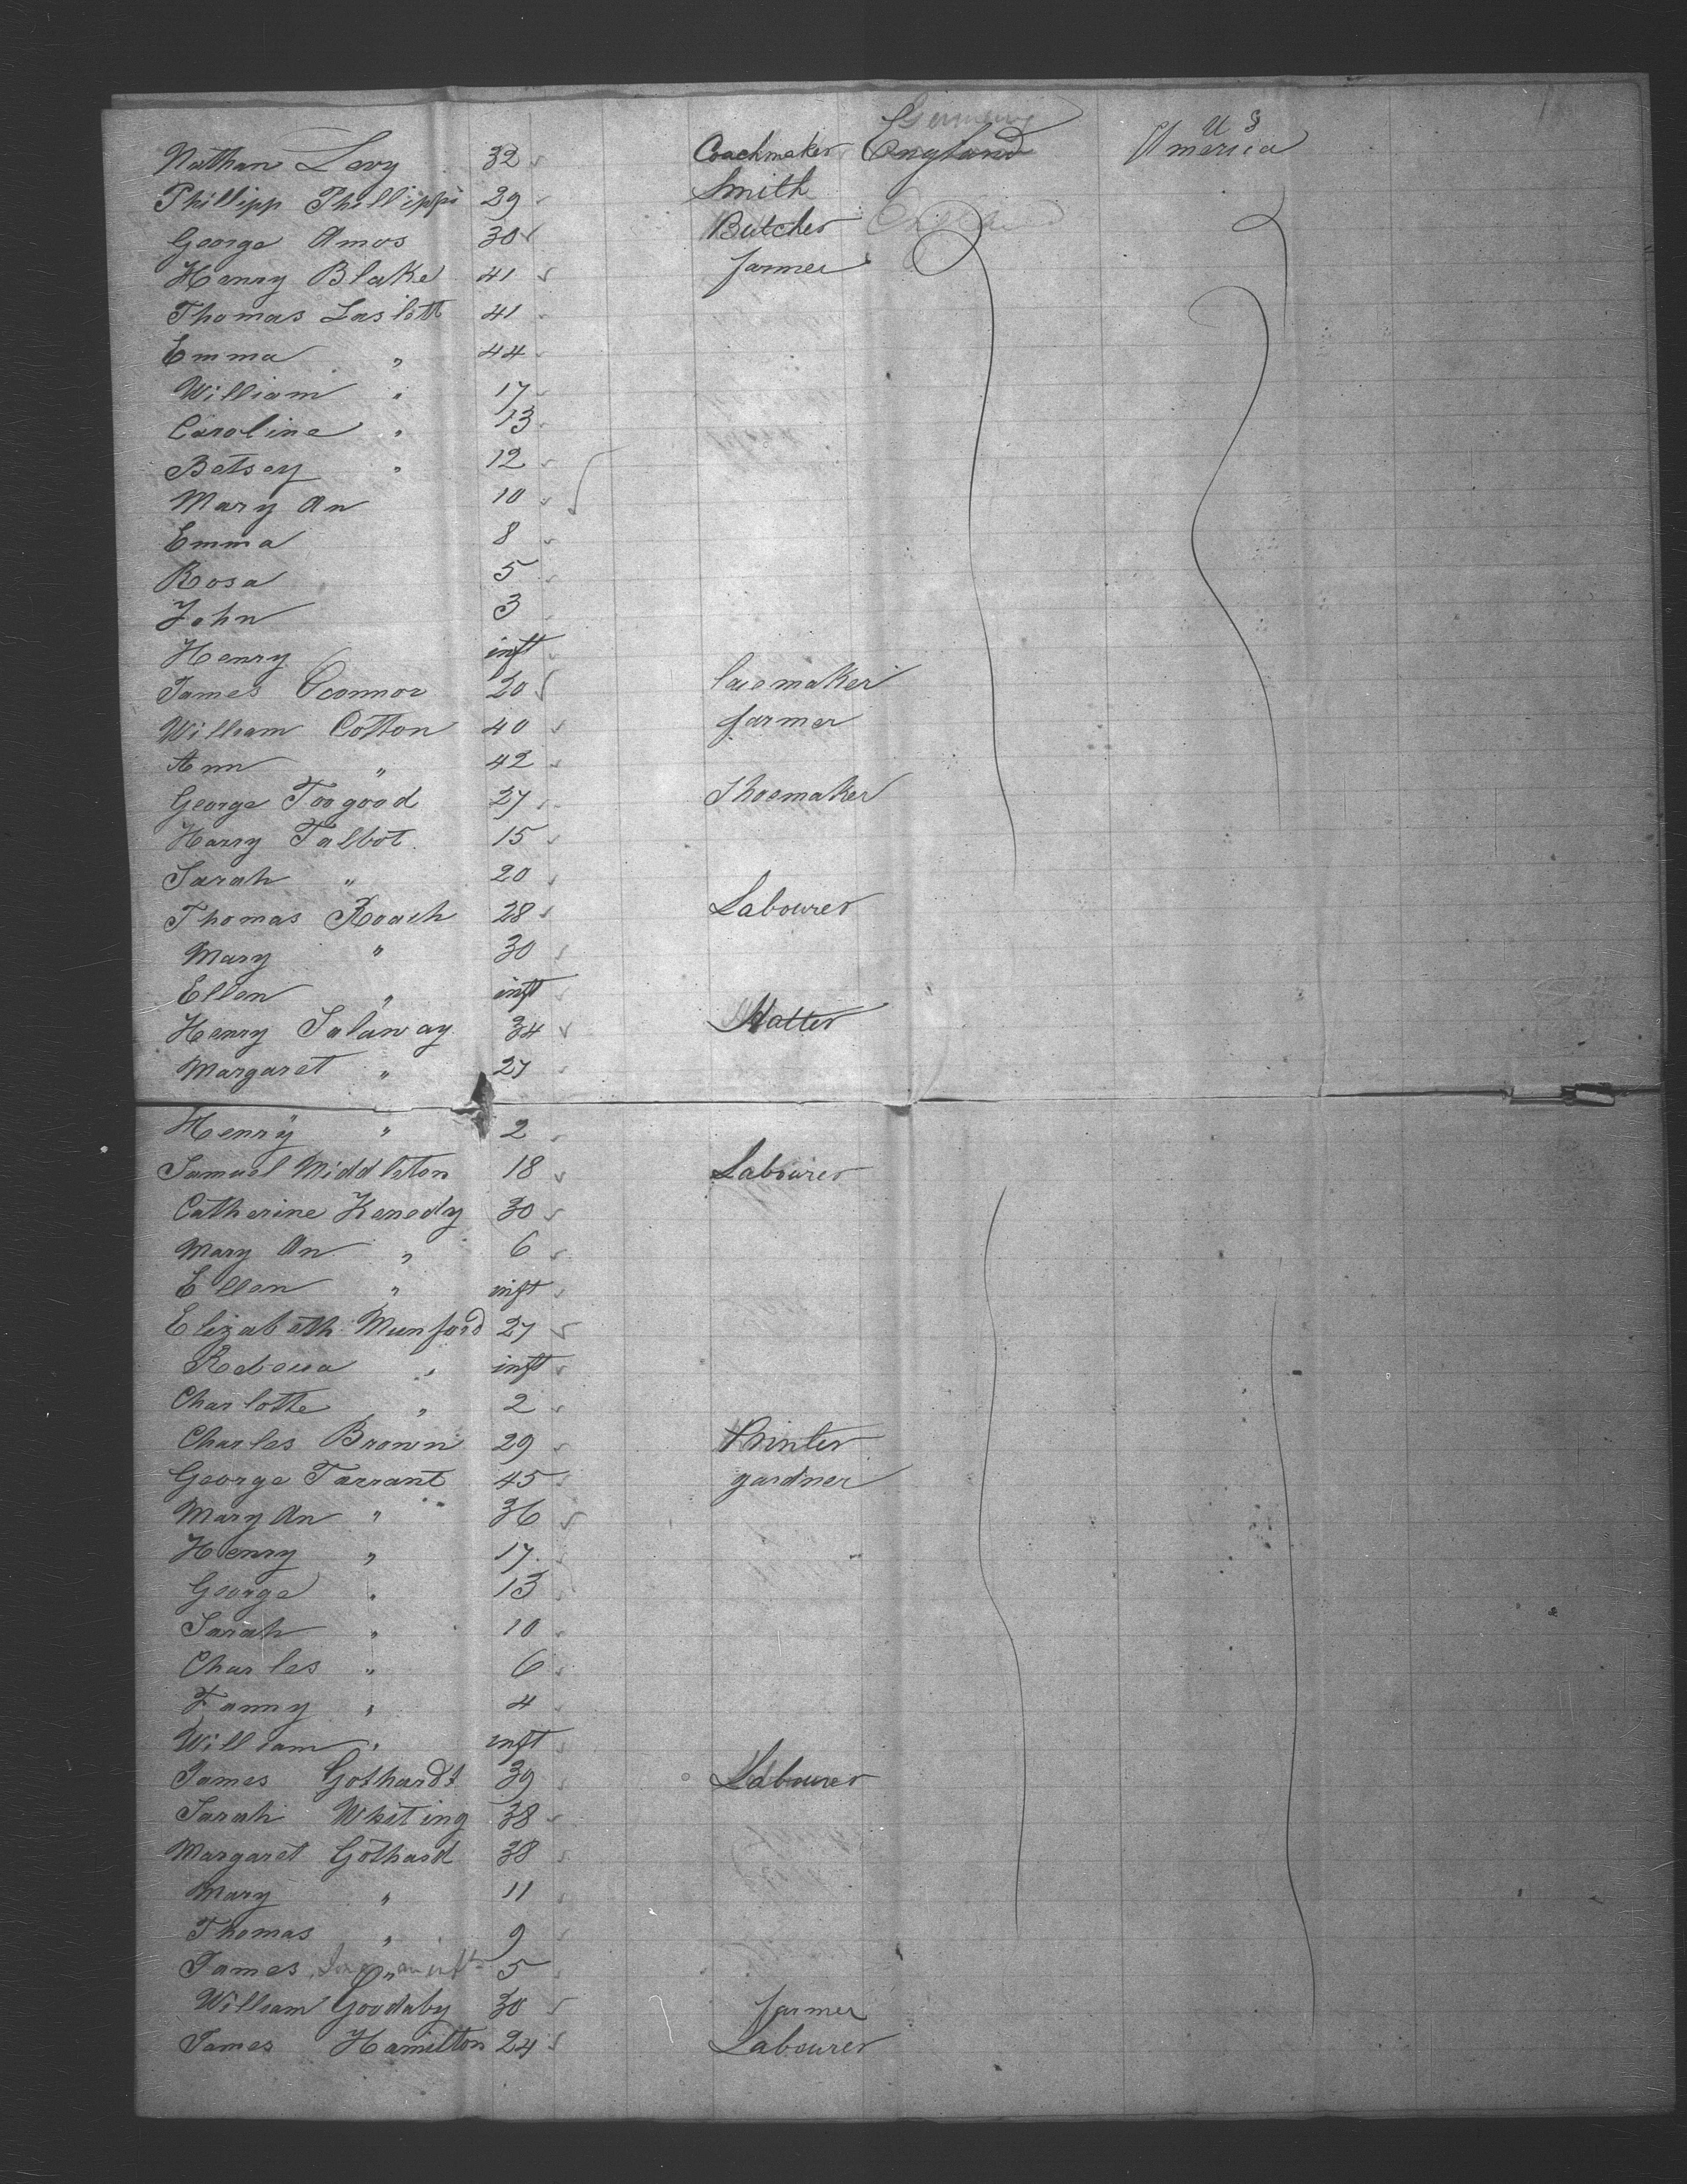 Germany
Nathan Levy 32 Coachmaker England U S America
Phillipp Phillippi 29 Smith
George Amos 30 Butcher
Henry Blake 41 farmer
Thomas Laslett 41
Emma " 44
William " 17
Caroline " 13
Betsey " 12
Mary An 10
Emma 8
Rosa 5
John 3
Henry inft
James Oconnor 20 lacemaker
William Cotton 40 farmer
Ann " 42
George Toogood 27 Shoemaker
Harry Talbot 15
Sarah " 20
Thomas Roach 28 Labourer
Mary " 30
Ellen " inft
Henry Salaway 34 Hatter
Margaret " 27
Henry " 2
Samuel Middleton 18 Labourer
Catherine Kenedy 30
Mary An " 6
Ellen " inft
Elizabeth Munford 27
Rebecca " inft
Charlotte " 2
Charles Brown 29 Printer
George Tarrant 45 gardner
Mary An " 36
Henry " 17
George " 13
Sarah " 10
Charles " 6
Fanny " 4
William " inft
James Gothardt 39 Labourer
Sarah Whiting 38
Margaret Gothard 38
Mary " 11
Thomas " 9
James " 5
William Goodaby 30 farmer
James Hamilton 24 Labourer